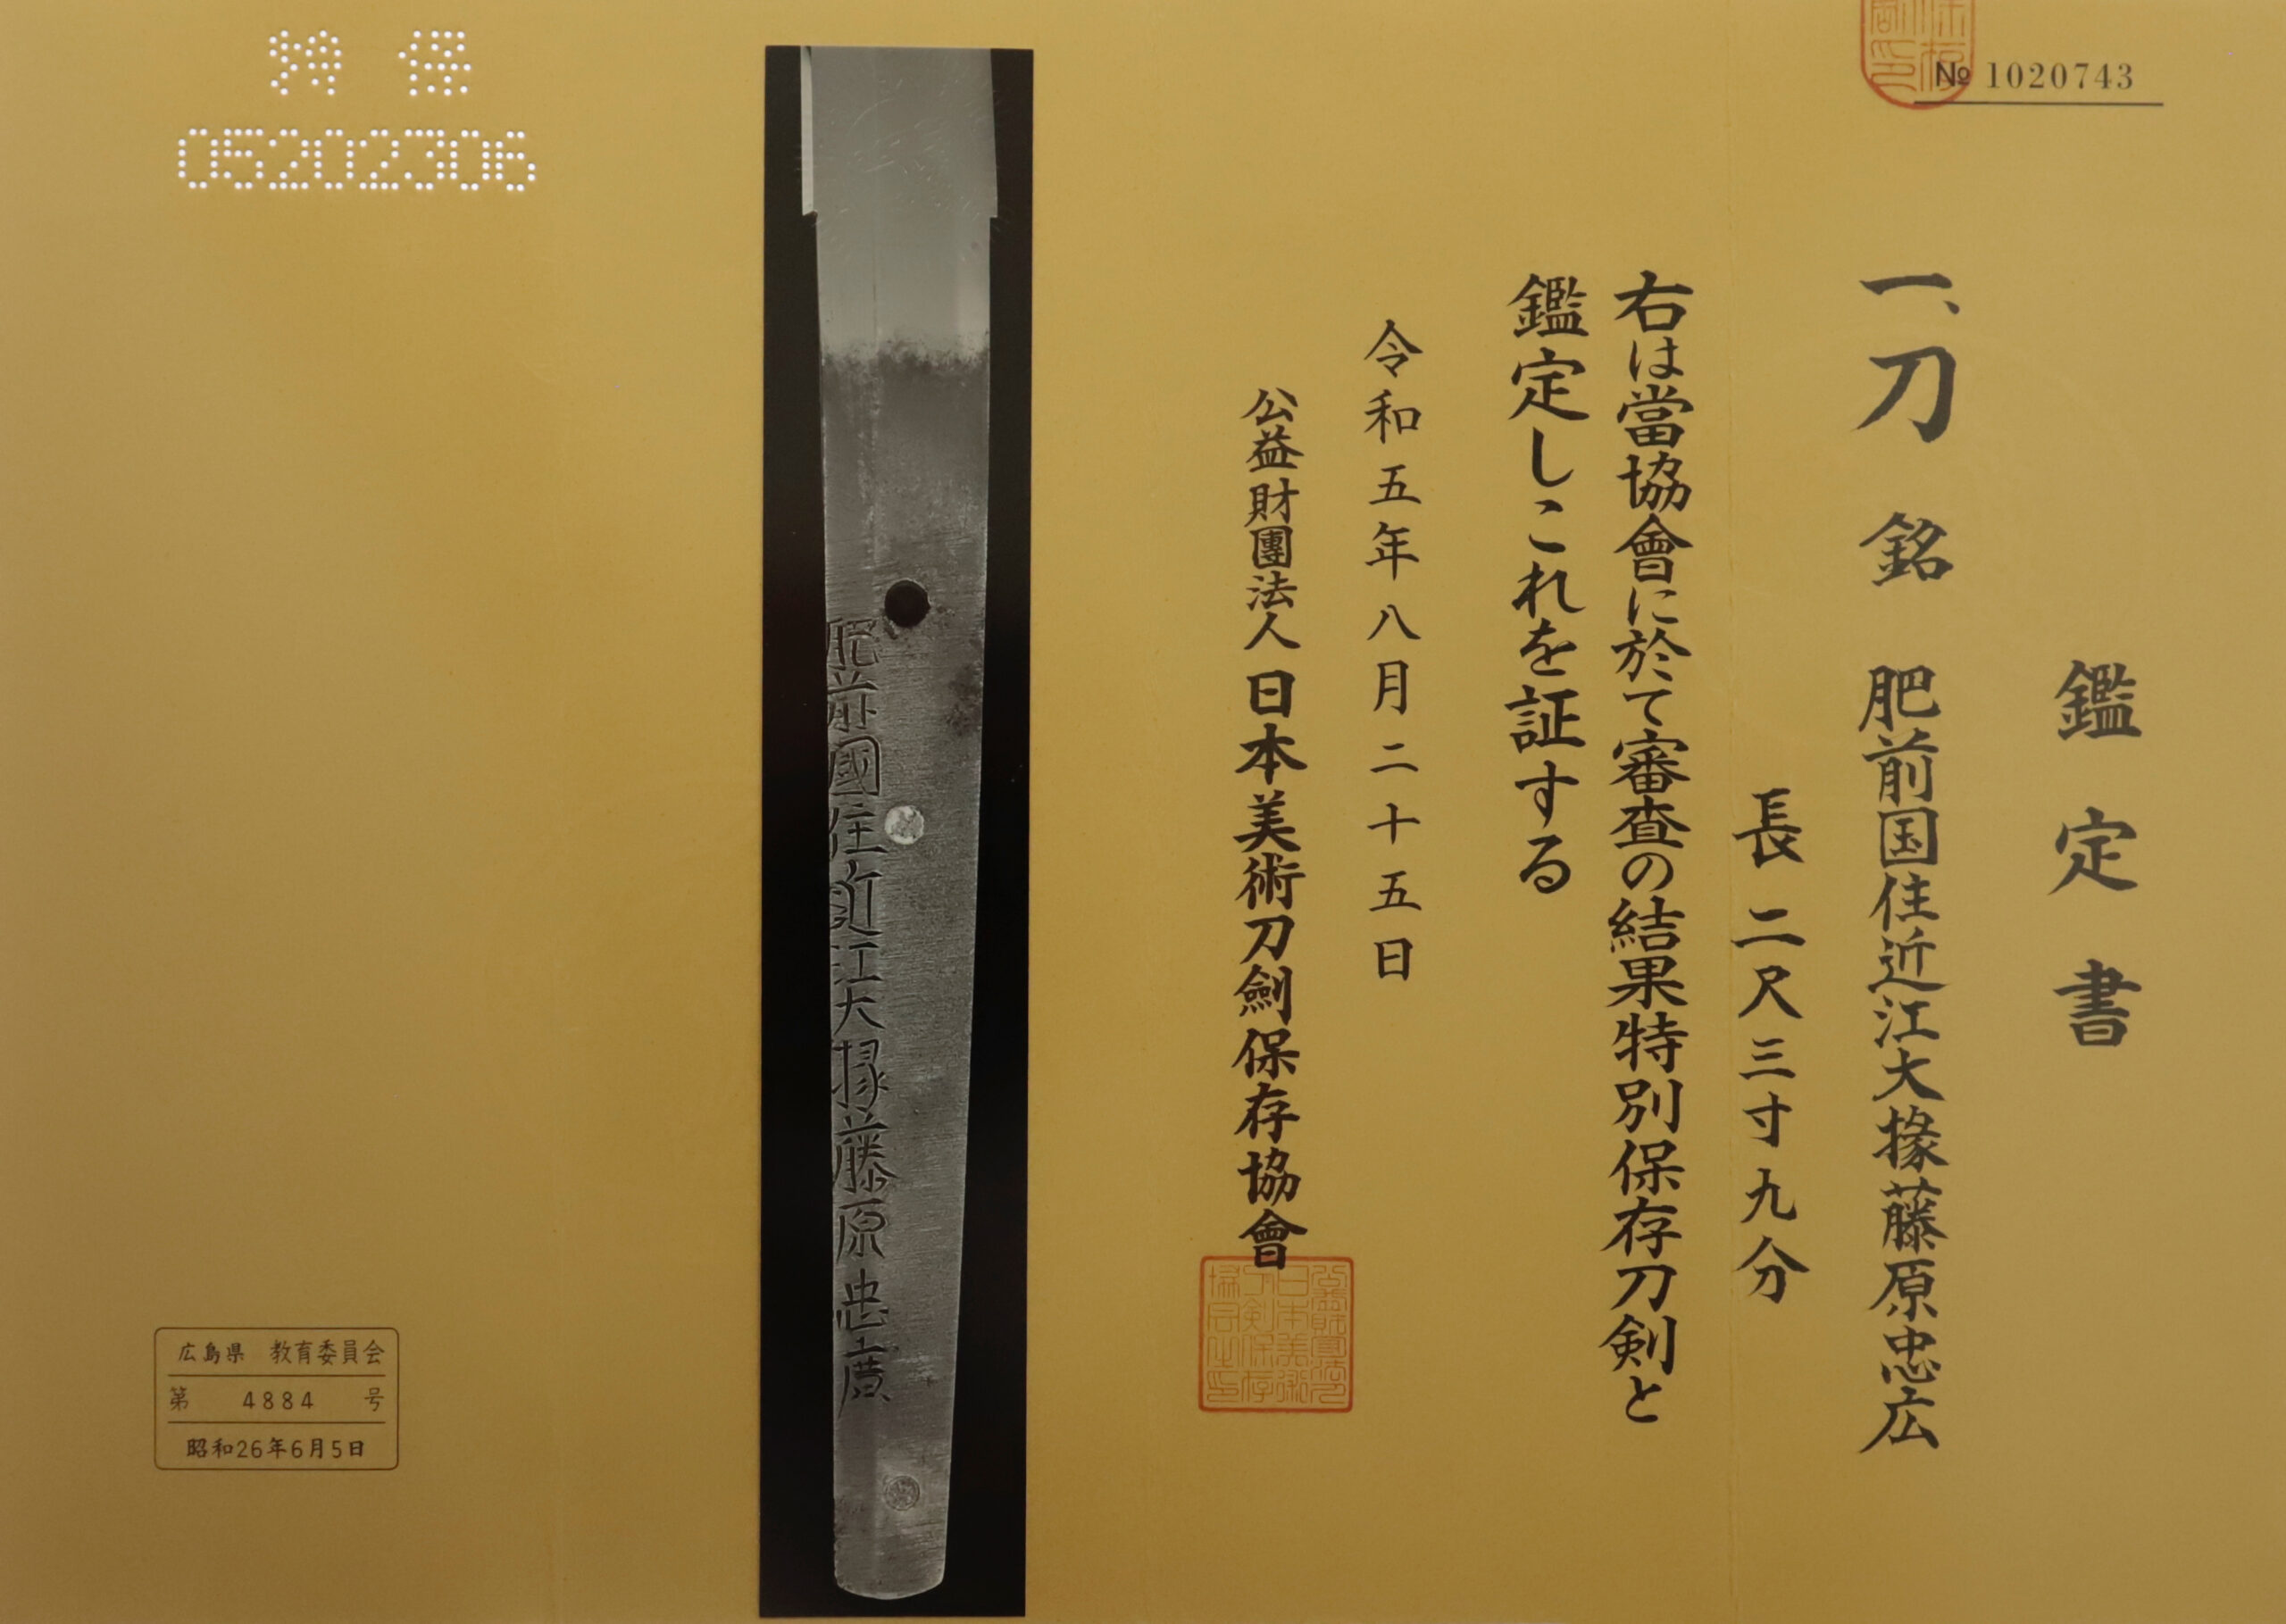 № 1020743
鑑定書
一、刀 銘 肥前国住近江大掾藤原忠広
長二尺三寸九分
右は當協會に於て審査の結果特別保存刀剣と
鑑定しこれを証する
令和五年八月二十五日
公益財團法人日本美術刀劍保存協會
肥前國住近江大掾藤原忠廣
特 保
05202306
広島県 教育委員会
第 4884 号
昭和26年6月5日